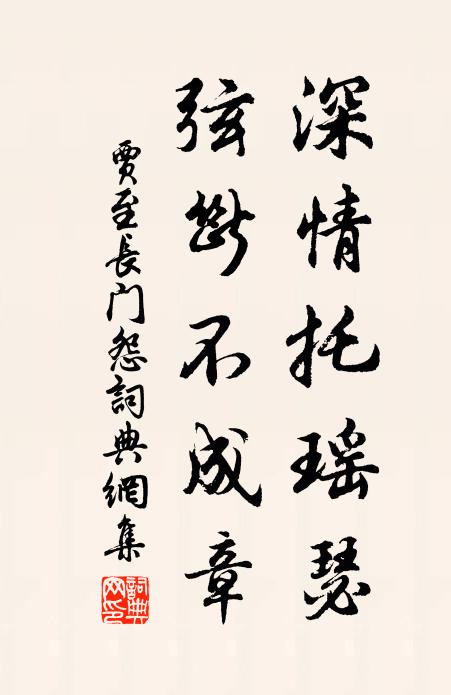 深情托瑶瑟
弦断不成章
賈至長门怨詞典網集
詞典
网印